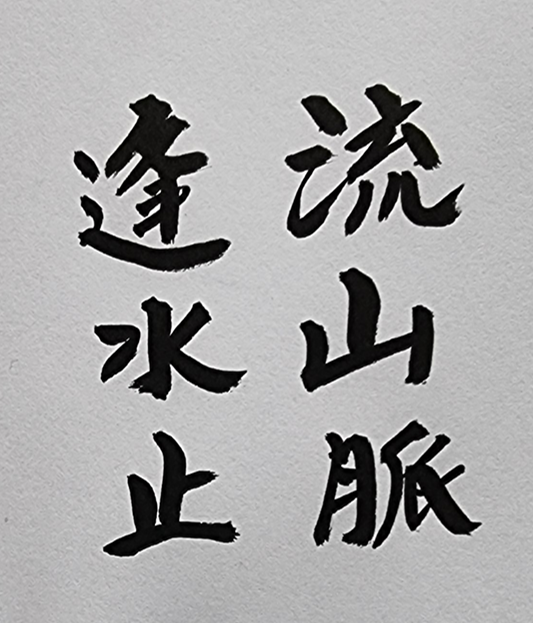 流山脈
逢水止